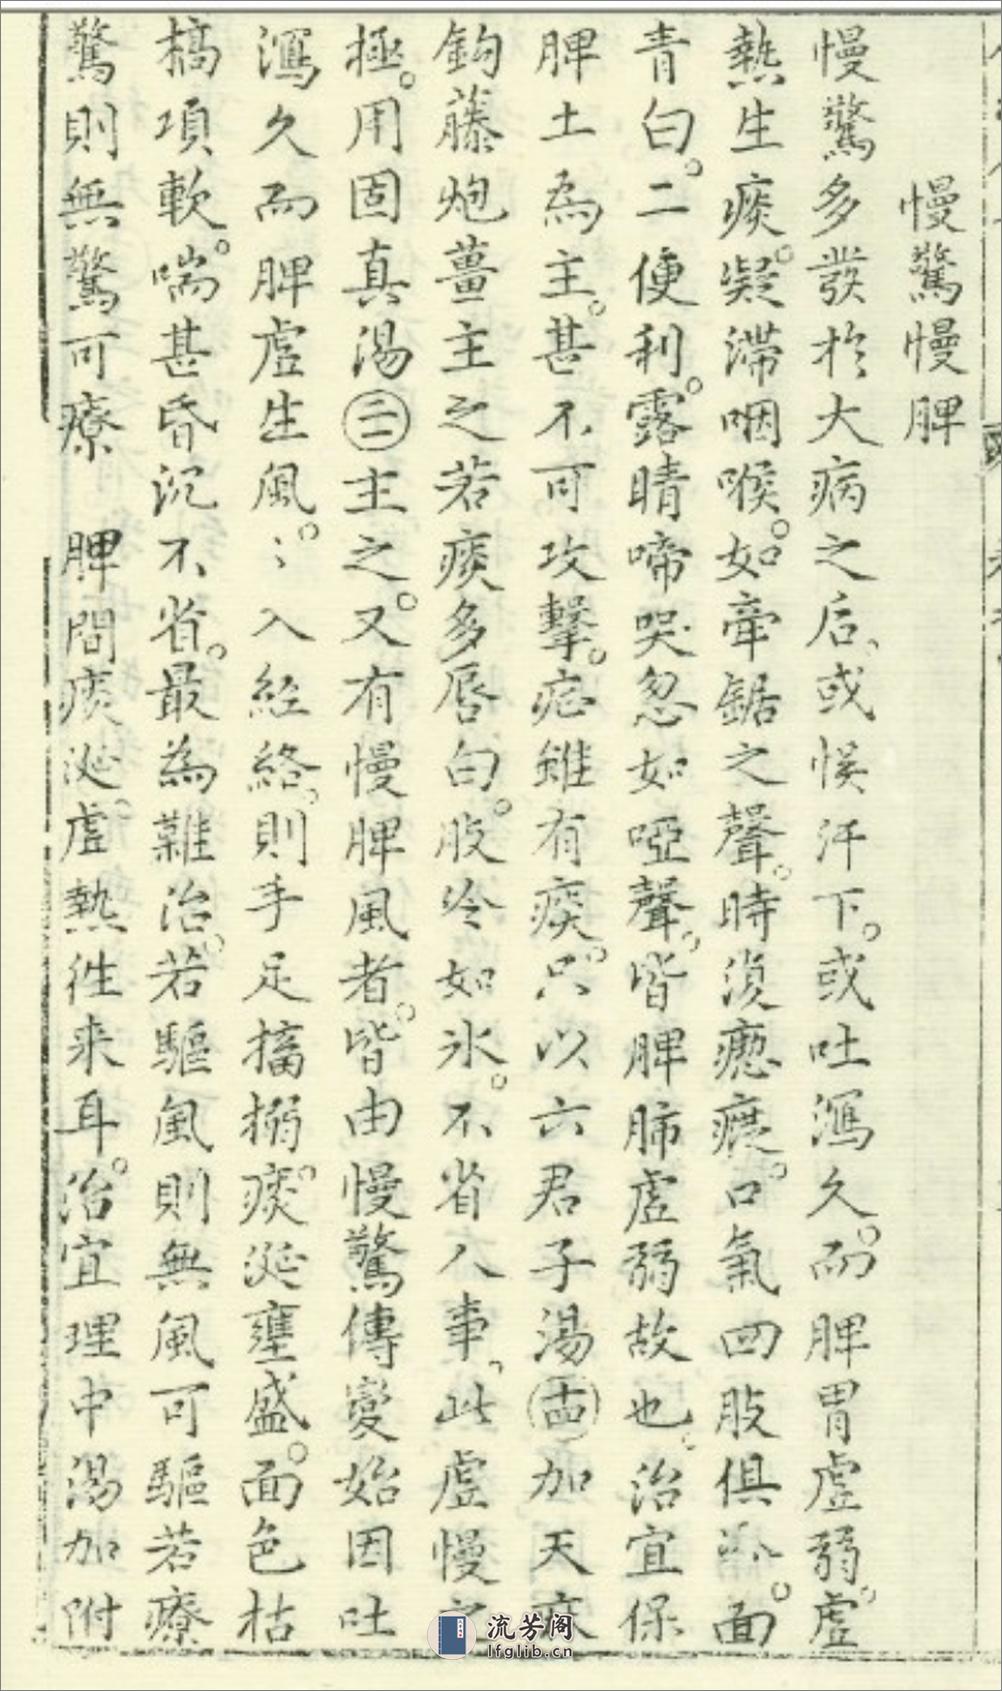 慢驚慢脾
慢驚多發於大病之后、或悮汗下。或吐瀉久。而脾胃虛弱。虛
熱生痰。凝滯咽喉。如牽鋸之聲。時復瘛瘲。口氣四肢俱冷。面
青白。二便利。露睛啼哭忽如啞聲。皆脾肺虛弱故也。治宜保
脾土為主。甚不可攻擊。症雖有痰。只以六君子湯㊉四加天麻
鈎藤炮薑主之若痰多唇白。肢冷如氷。不省人事、此虛慢之
極。用固真湯二二主之。又有慢脾風者。皆由慢驚傳變始因吐
瀉久而脾虛生風。〻入經絡、則手足搐搦。痰涎壅盛。面色枯
槁項軟。喘甚昏沉不省。最為難治。若驅風則無風可驅若療
驚則無驚可療　脾間痰涎。虛熱徃来耳。治宜理中湯加附
流芳阁
lfglib.cn